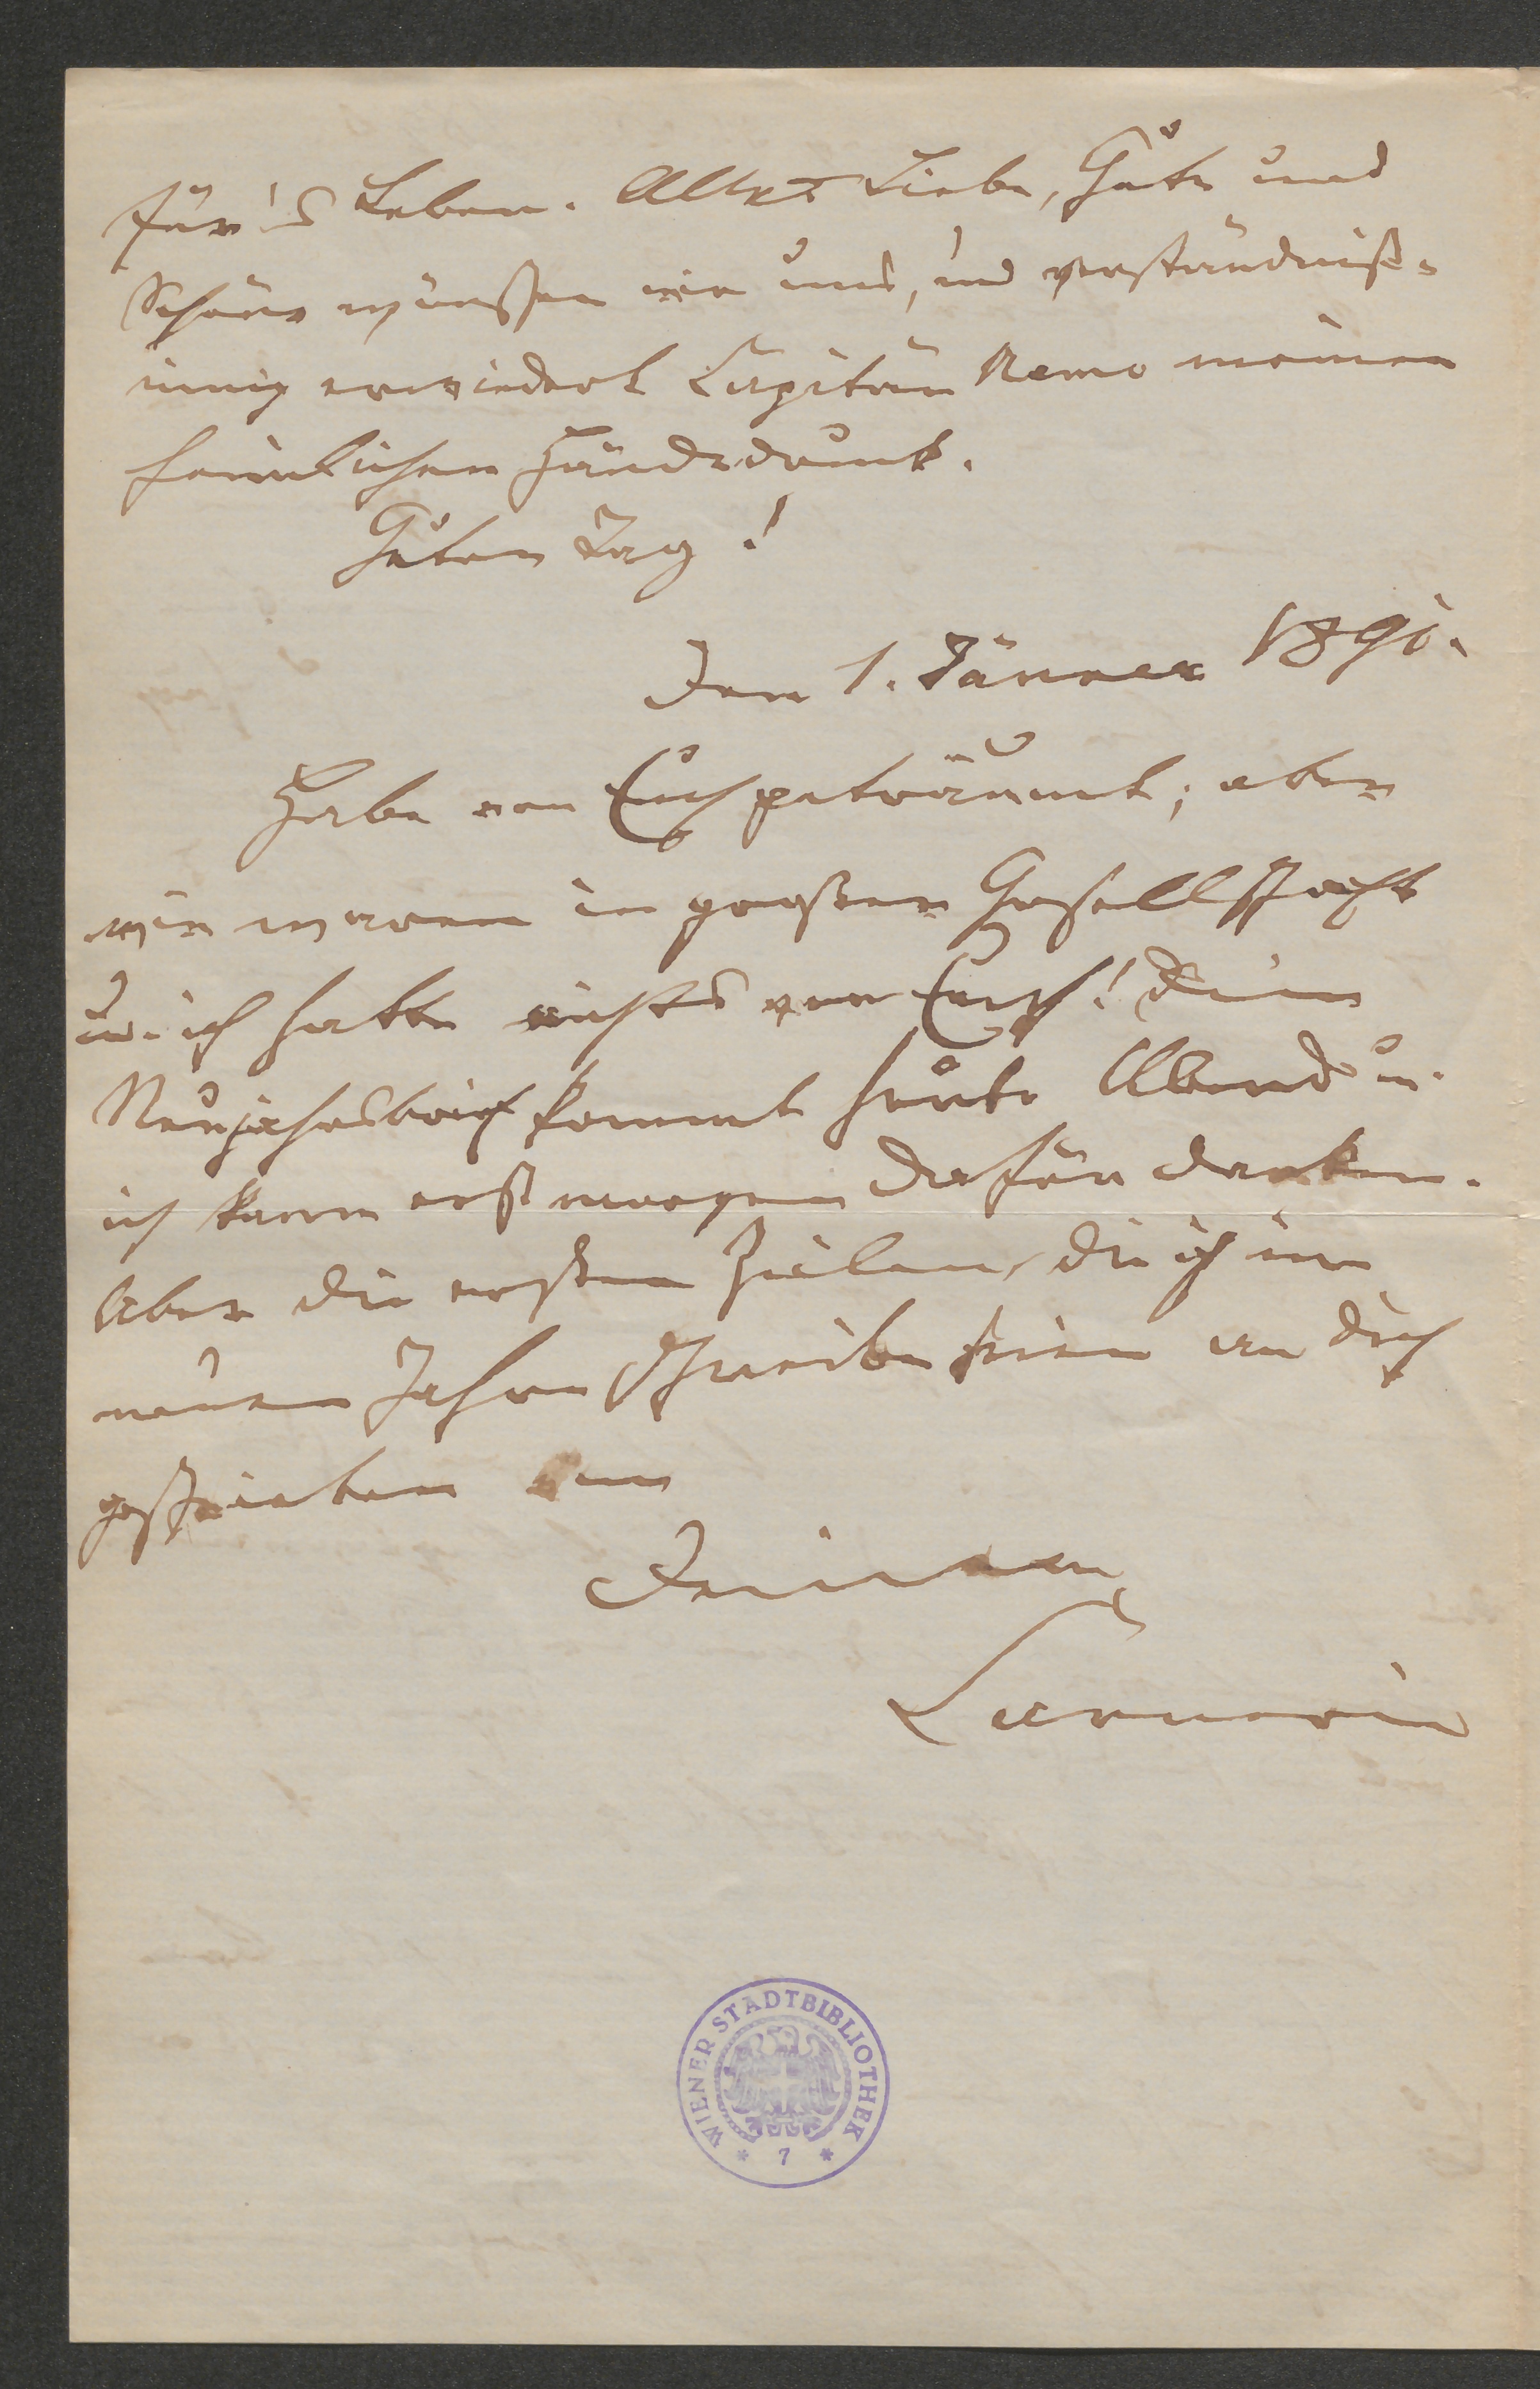 für's Leben. Alles Liebe, Gute und
Schöne wünschen wir uns, und verständniß-
innig erwiedert Capitän Nemo meinen
heimlichen Händedruck.
Guten Tag!
Den 1. Jänner 1891.
Habe von Euch geträumt; aber
wir waren in großer Gesellschaft
u. ich hatte nichts von Euch! Dein
Neujahrsbrief kommt heute Abend u.
ich kann erst morgen dafür danken.
Aber die ersten Zeilen, die ich im
neuen Jahre schreibe seien an Dich
geschrieben von
Deinem
WIENER STADTBIBLIOTHEK
* 7 *